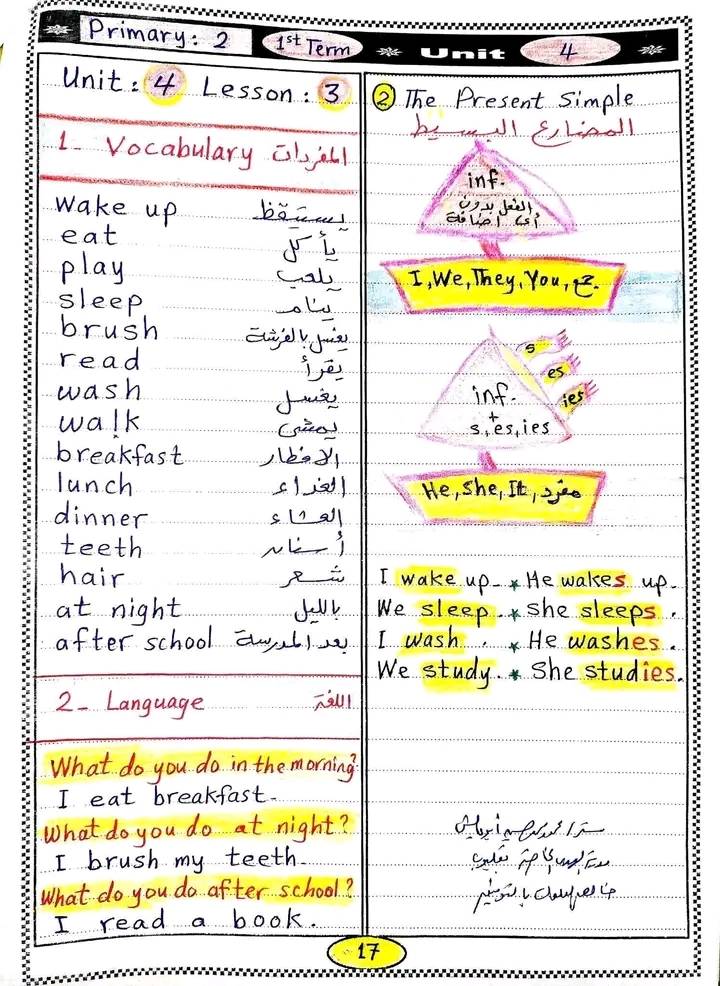 Primary: 2 1st Term Unit 4
Unit: 4 Lesson: 3
1- Vocabulary المفردات
wake up يستيقظ
eat يأكل
play يلعب
sleep ينام
brush يغسل بالفرشة
read يقرأ
wash يغسل
walk يمشى
breakfast الافطار
lunch الغداء
dinner العشاء
teeth أسنان
hair شعر
at night بالليل
after school بعد المدرسة
2- Language اللغة
What do you do in the morning?
I eat breakfast.
What do you do at night?
I brush my teeth.
What do you do after school?
I read a book.
2 The Present Simple
المضارع البسيط
inf.
الفعل بدون
أى اضافة
I, We, They, You, جمع.
s
es
ies
inf.
+
s, es, ies
He, She, It, مفرد
I wake up. * He wakes up.
We sleep. * She sleeps.
I wash. * He washes.
We study. * She studies.
بالتوفيق
17